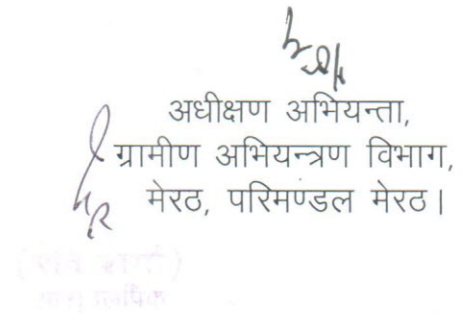 अधीक्षण अभियन्ता,
ग्रामीण अभियन्त्रण विभाग,
मेरठ, परिमण्डल मेरठ।